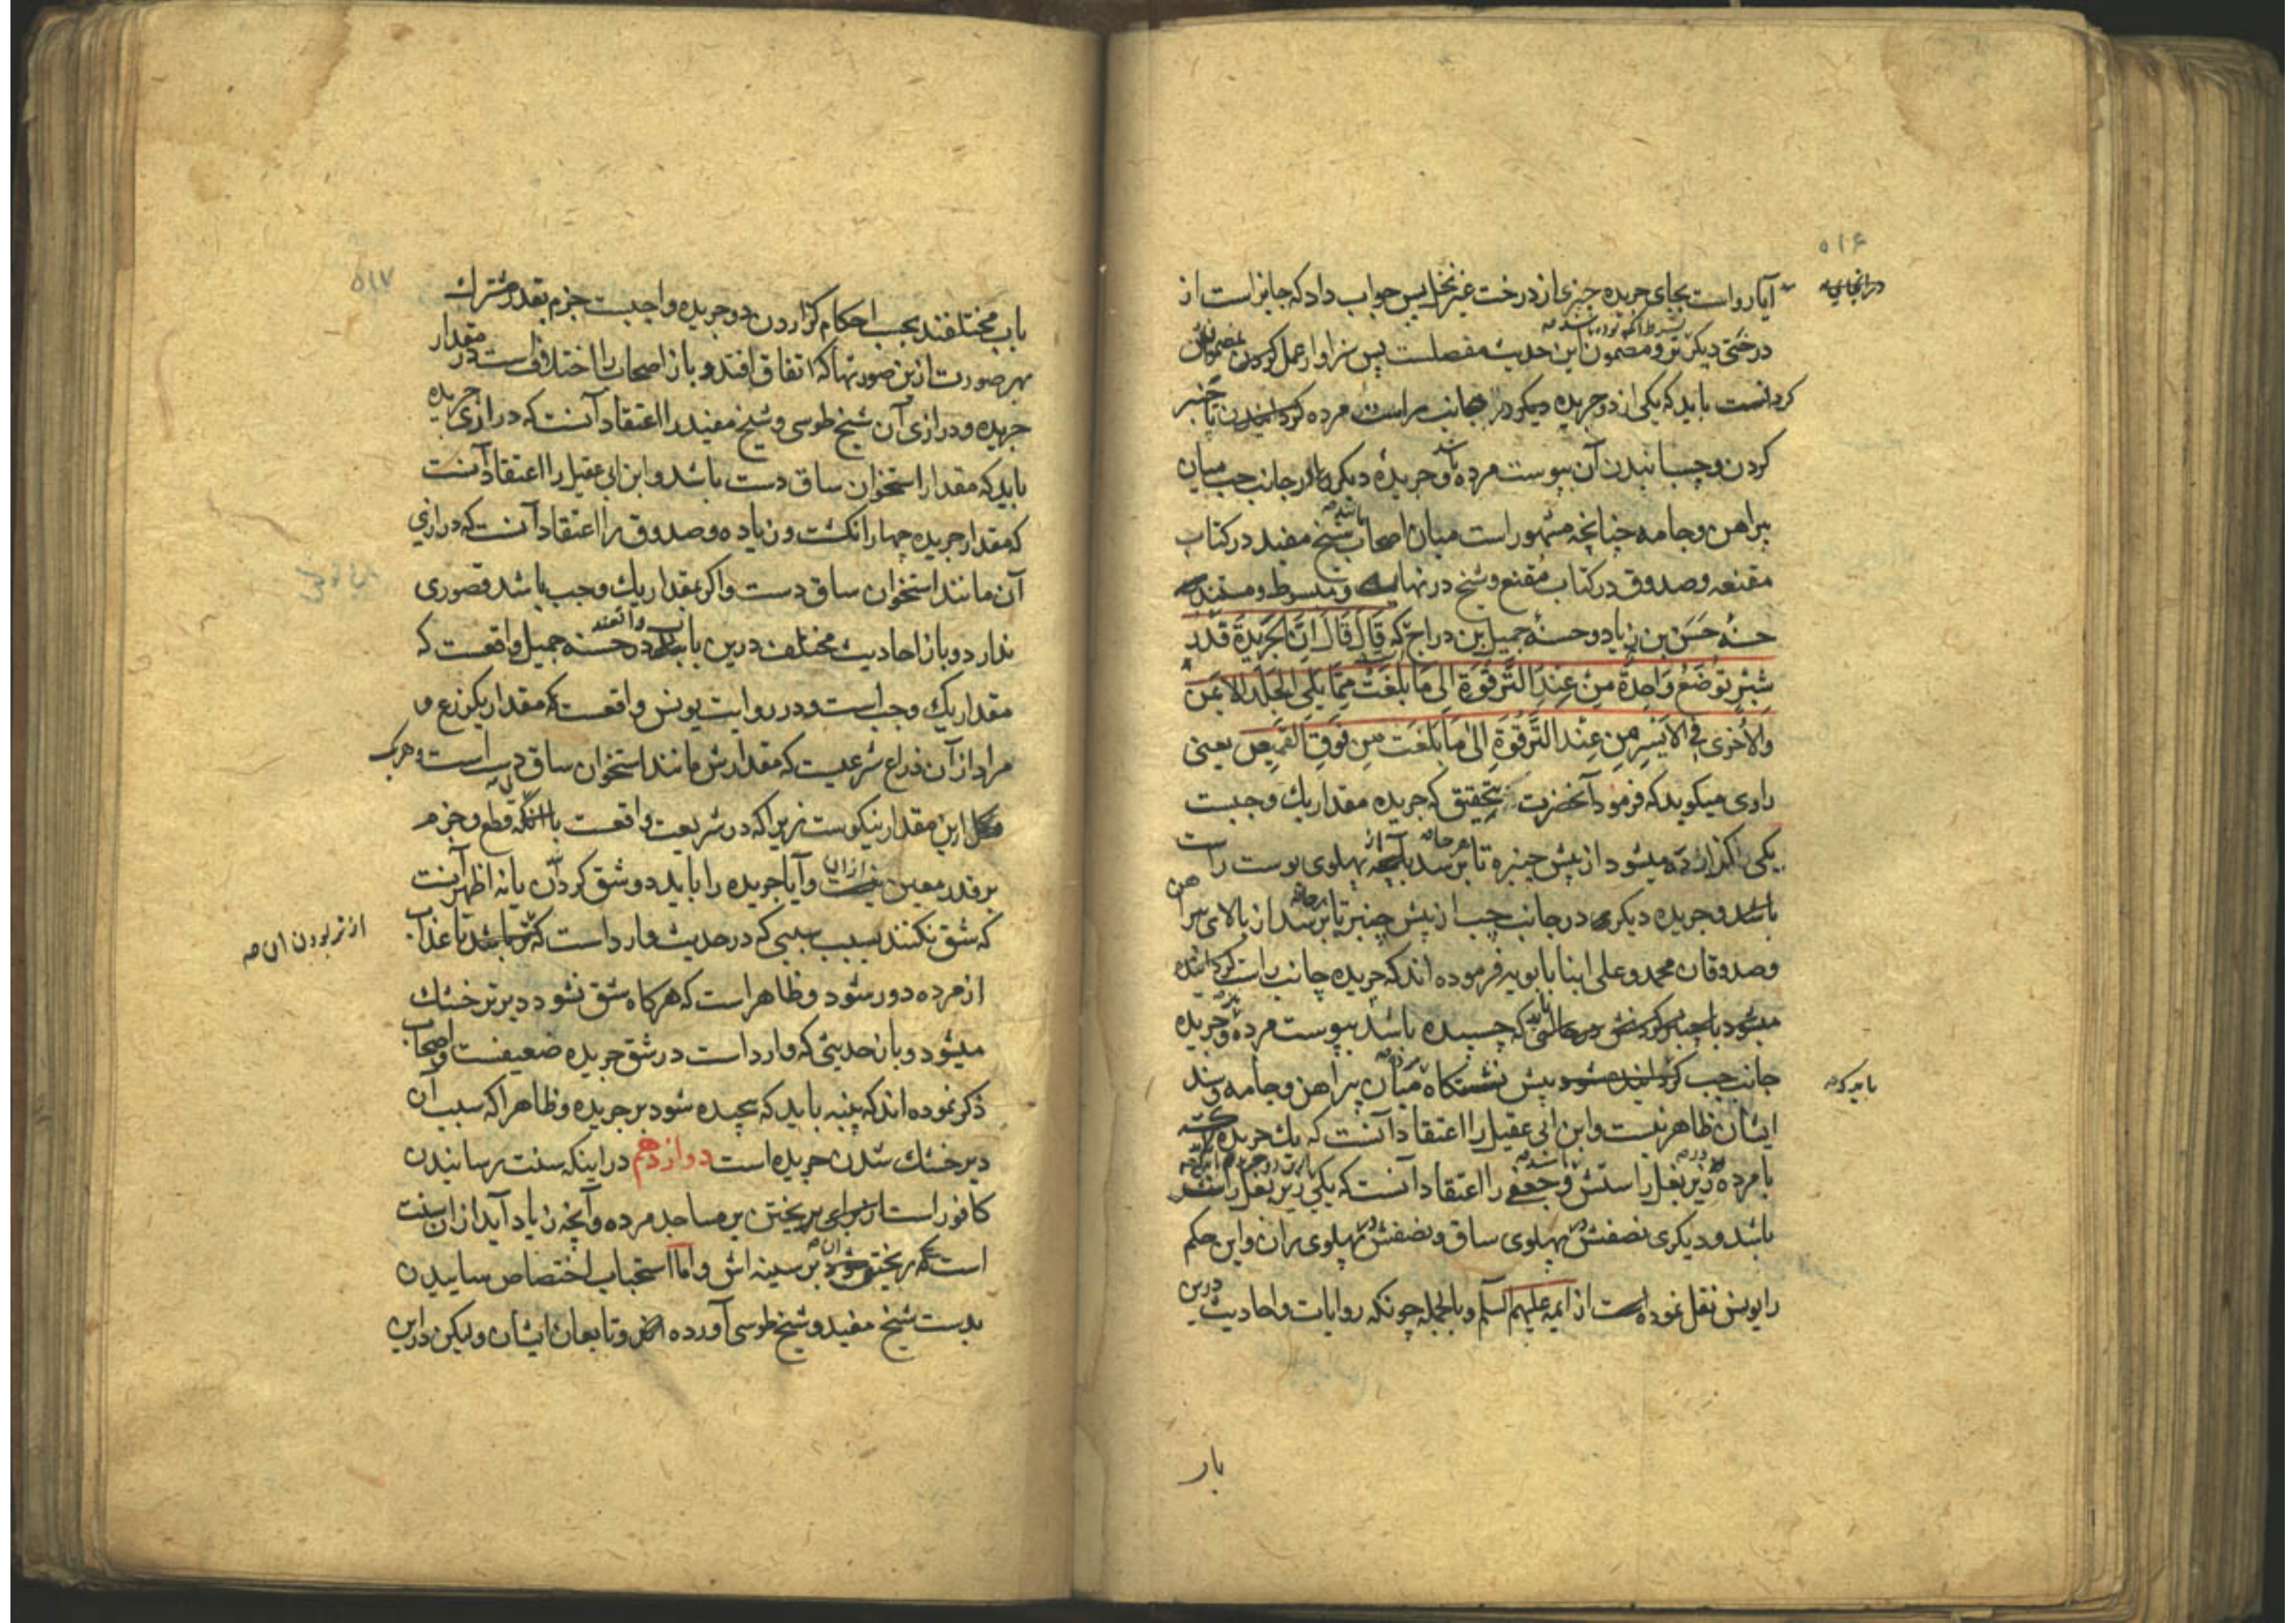 ۵۱۶
آیا رواست بجای جریده چیزی از درخت غیر نخل پس جواب داد که جایز است از
درختی دیگر تر و مضمون این حدیث مفصلست پس سزاوار عمل کردن
کردانست باید که یکی از دو جریده در جانب راست مرده تا چنبر
کردن و چسبانیدن آن بپوست مرده و جریدهٔ دیکر در جانب چپ میان
پیراهن و جامه چنانچه مشهور است میان اصحاب شیخ مفید در کتاب
مقنعه و صدوق در کتاب مقنع و شیخ در نهایه و مبسوط و مستند
حسنهٔ حسن بن زیاد و حسنهٔ جمیل بن دراج که قَالَ قَالَ اِنَّ الجَرِیدَةَ قَدْرُ
شِبْرٍ تُوضَعُ وَاحِدَةٌ مِنْ عِنْدِ التَّرقُوَةِ اِلٰی مَا بَلَغَتْ مِمَّا یَلِی الجِلْدَ الاَیمَنَ
وَالاُخرٰی فِی الاَیْسَرِ مِنْ عِنْدِ التَّرقُوَةِ اِلٰی مَا بَلَغَت مِن فَوقِ القَمِیصِ یعنی
راوی میکوید که فرمود آنحضرت بتحقیق که جریده مقدار یک وجبست
یکی کذارده میشود از پیش چنبره تا هر جا که برسد از پهلوی پوست راست
باشد و جریده دیکری در جانب چپ از پیش چنبر تا برسد از بالای پیراهن
و صدوقان محمد و علی ابنا بابویه فرموده اند که جریده جانب راست
میشود که چسبیده باشد بپوست مرده و جریده
باید که
جانب چپ پیش میان پیراهن و جامه و سند
ایشان ظاهر نیست و ابن ابی عقیل را اعتقاد آنست که یک جریده
با مرده در زیر بغل راستش و جعفی را اعتقاد آنست که یکی زیر بغل راست
باشد و دیکری نصفش در پهلوی ساق و نصفش در پهلوی ران و این حکم
را یونس نقل نموده است از ایمه علیهم السلم و بالجمله چونکه روایات و احادیث درین
بار
۵۱۷
باب مختلفند بحسب احکام کزاردن دو جریده واجبست جزم بقدر مشترک
بهر صورت از ین صورتها که اتفاق افتد و باز اصحاب را اختلافست در مقدار
جریده و درازی آن شیخ طوسی و شیخ مفید را اعتقاد آنست که درازی جریده
باید که مقدار استخوان ساق دست باشد و ابن ابی عقیل را اعتقاد آنست
که مقدار جریده چهار انکشت و زیاده و صدوق را اعتقاد آنست که درازی
آن مانند استخوان ساق دست و اکر بمقدار یک وجب باشد قصوری
ندارد و باز احادیث مختلف درین باب در حسنه جمیل واقعست که
مقدار یک وجب است و در روایت یونس واقعست که مقدار یکزرع و
مراد از آن ذراع شرعیست که مقدارش مانند استخوان ساق دست است و هر یک
ازین مقدار نیکوست زیرا که در شریعت واقعست با انکه قطع و جزم
بر قدر معین نیست و آیا جریده را باید دو شق کردن یا نه اظهر آنست
که شق نکنند بسبب سببی که در حدیث وارد است که تا عذاب
از تر بودن ان صه
از مرده دور شود و ظاهر است که هرکاه شق نشود دیرتر خشک
میشود و باز حدیثی که وارد است در شق جریده ضعیفست و اصحاب
ذکر نموده اند که پنبه باید که پیچیده شود بر جریده و ظاهرا که سبب آن
دیر خشک شدن جریده است دوازدهم در اینکه سنت رسانیدن
کافور است از برای ریختن بر مساجد مرده و آنچه زیاد آید از ان سنت
است که ریختن ان بر سینه اش و اما استحباب اختصاص سابیدن
بدست شیخ مفید و شیخ طوسی آورده اند و تابعان ایشان و لیکن در این